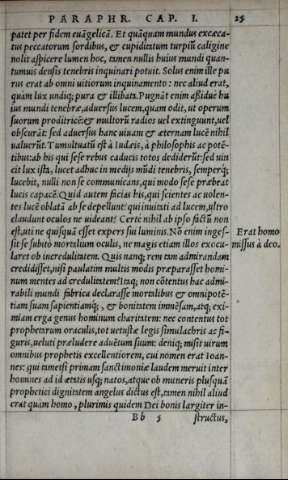 PARAPHR. CAP. I. 25
patet per fidem euãgelicã. Et quãquam mundus excæca-
tus peccatorum sordibus, & cupiditatum turpiũ caligine
nolit aspicere lumen hoc, tamen nullis huius mundi quan-
tumuis densis tenebris inquinari potuit. Solus enim ille pu
rus erat ab omni uitiorum inquinamento: nec aliud erat,
quàm lux undiq; pura & illibata. Pugnãt enim assiduè hu
ius mundi tenebræ, aduersus lucem, quam odit, ut operum
suorum proditricē: & multorũ radios uel extinguunt, uel
obscurãt: sed aduersus hanc uiuam & æternam lucē nihil
ualuerũt. Tumultuatũ est à Iudæis, à philosophis ac potē-
tibus: ab his qui sese rebus caducis totos dediderũt: sed uin
cit lux ista, lucet adhuc in medijs mũdi tenebris, semperq;
lucebit, nulli non se communicans, qui modo sese præbeat
lucis capacē. Quid autem facias his, qui scientes ac uolen-
tes lucē oblatã ab se depellunt: qui inuitati ad lucem, ultro
claudunt oculos ne uideant? Certè nihil ab ipso factũ non
est, ut ne quisquã esset expers sui luminis. Nõ enim inges-
sit se subitò mortalium oculis, ne magis etiam illos excæca
ret ob incredulitatem. Quis nanq; rem tam admirandam
credidisset, nisi paulatim multis modis præparasset homi-
num mentes ad credulitatem? Itaq; non cõtentus hac admi-
rabili mundi fabrica declarasse mortalibus & omnipotē-
tiam suam sapientiamq;, & bonitatem immēsam, atq; exi-
miam erga genus hominum charitatem: nec contentus tot
prophetarum oraculis, tot uetustæ legis simulachris ac fi-
guris, ueluti præludere aduētum suum: deniq; misit uirum
omnibus prophetis excellentiorem, cui nomen erat Ioan-
nes: qui tametsi primam sanctimoniæ laudem meruit inter
homines ad id ætatis usq; natos, atque ob muneris plusquã
prophetici dignitatem angelus dictus est, tamen nihil aliud
erat quàm homo, plurimis quidem Dei bonis largiter in-
Bb 5 structus,
Erat homo
missus à deo.